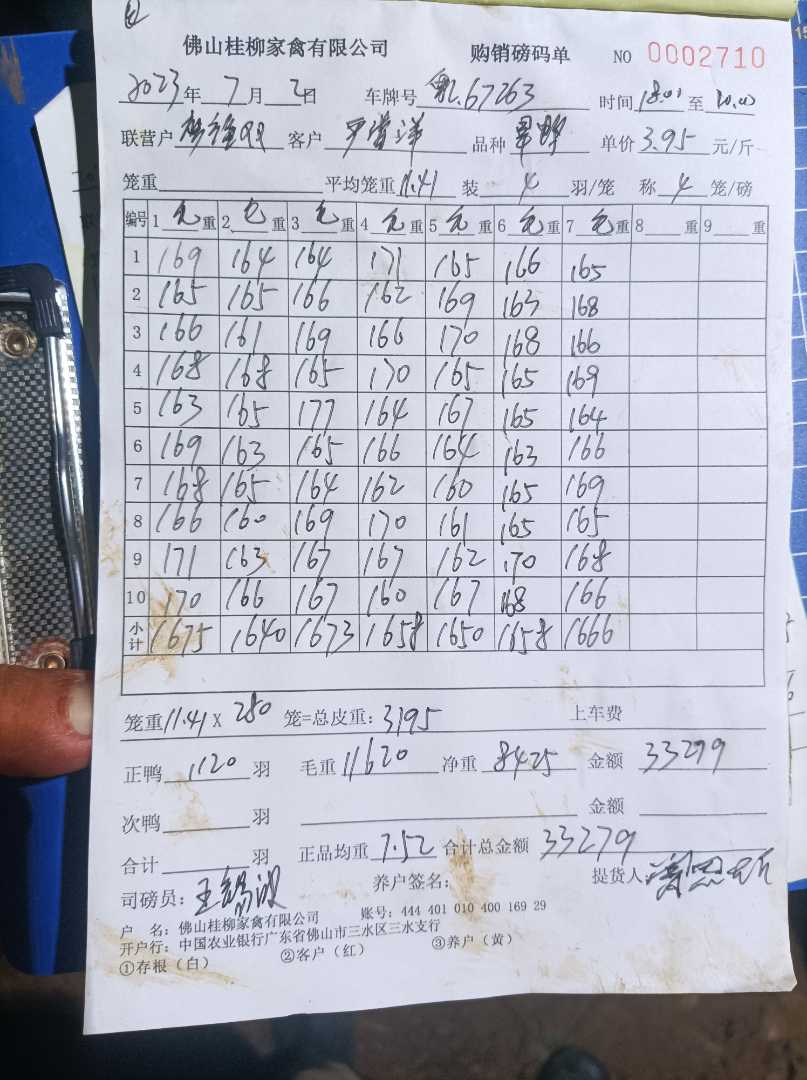 佛山桂柳家禽有限公司 购销磅码单 NO 0002710
2023年7月2日 车牌号 粤L.67263 时间 18:01 至
联营户 客户 品种 单价 3.95 元/斤
笼重 平均笼重 11.41 装 4 羽/笼 称 4 笼/磅
编号 1 毛 重 2 毛 重 3 毛 重 4 毛 重 5 毛 重 6 毛 重 7 毛 重 8 重 9 重
1 169 164 164 171 165 166 165
2 165 165 166 162 169 163 168
3 166 161 169 166 170 168 166
4 168 168 165 170 165 165 169
5 163 165 177 164 167 165 164
6 169 163 165 166 164 163 166
7 168 165 164 162 160 165 169
8 166 160 169 170 161 165 165
9 171 163 167 167 162 170 168
10 170 166 167 160 167 168 166
小计 1675 1640 1673 1658 1650 1658 1666
笼重 11.41 X 280 笼=总皮重: 3195 上车费
正鸭 1120 羽 毛重 11620 净重 8425 金额 33299
次鸭 羽 金额
合计 羽 正品均重 7.52 合计总金额 33279
司磅员: 王锡波 养户签名: 提货人:
户 名: 佛山桂柳家禽有限公司 账号: 444 401 010 400 169 29
开户行: 中国农业银行广东省佛山市三水区三水支行
①存根（白） ②客户（红） ③养户（黄）